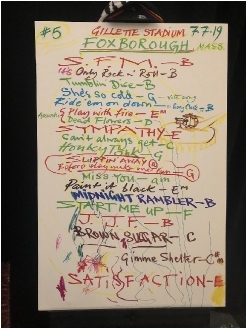 #5 GILLETTE STADIUM 7-7-19
FOXBOROUGH, MASS.
S.F.M. - B
It's Only Rock n' Roll - B
Tumblin Dice - B
She's so cold - G
Ride 'em on down - B
Play with fire - Em
Dead Flowers - D
SYMPATHY - E
Can't always get - C
Honky Tonk - G
SLIPPIN AWAY
Before they make me run
MISS YOU - am
Paint it black - Em
MIDNIGHT RAMBLER - B
START ME UP - F
J.J.F. - B
BROWN SUGAR - C
Gimme Shelter - C#
SATISFACTION - E